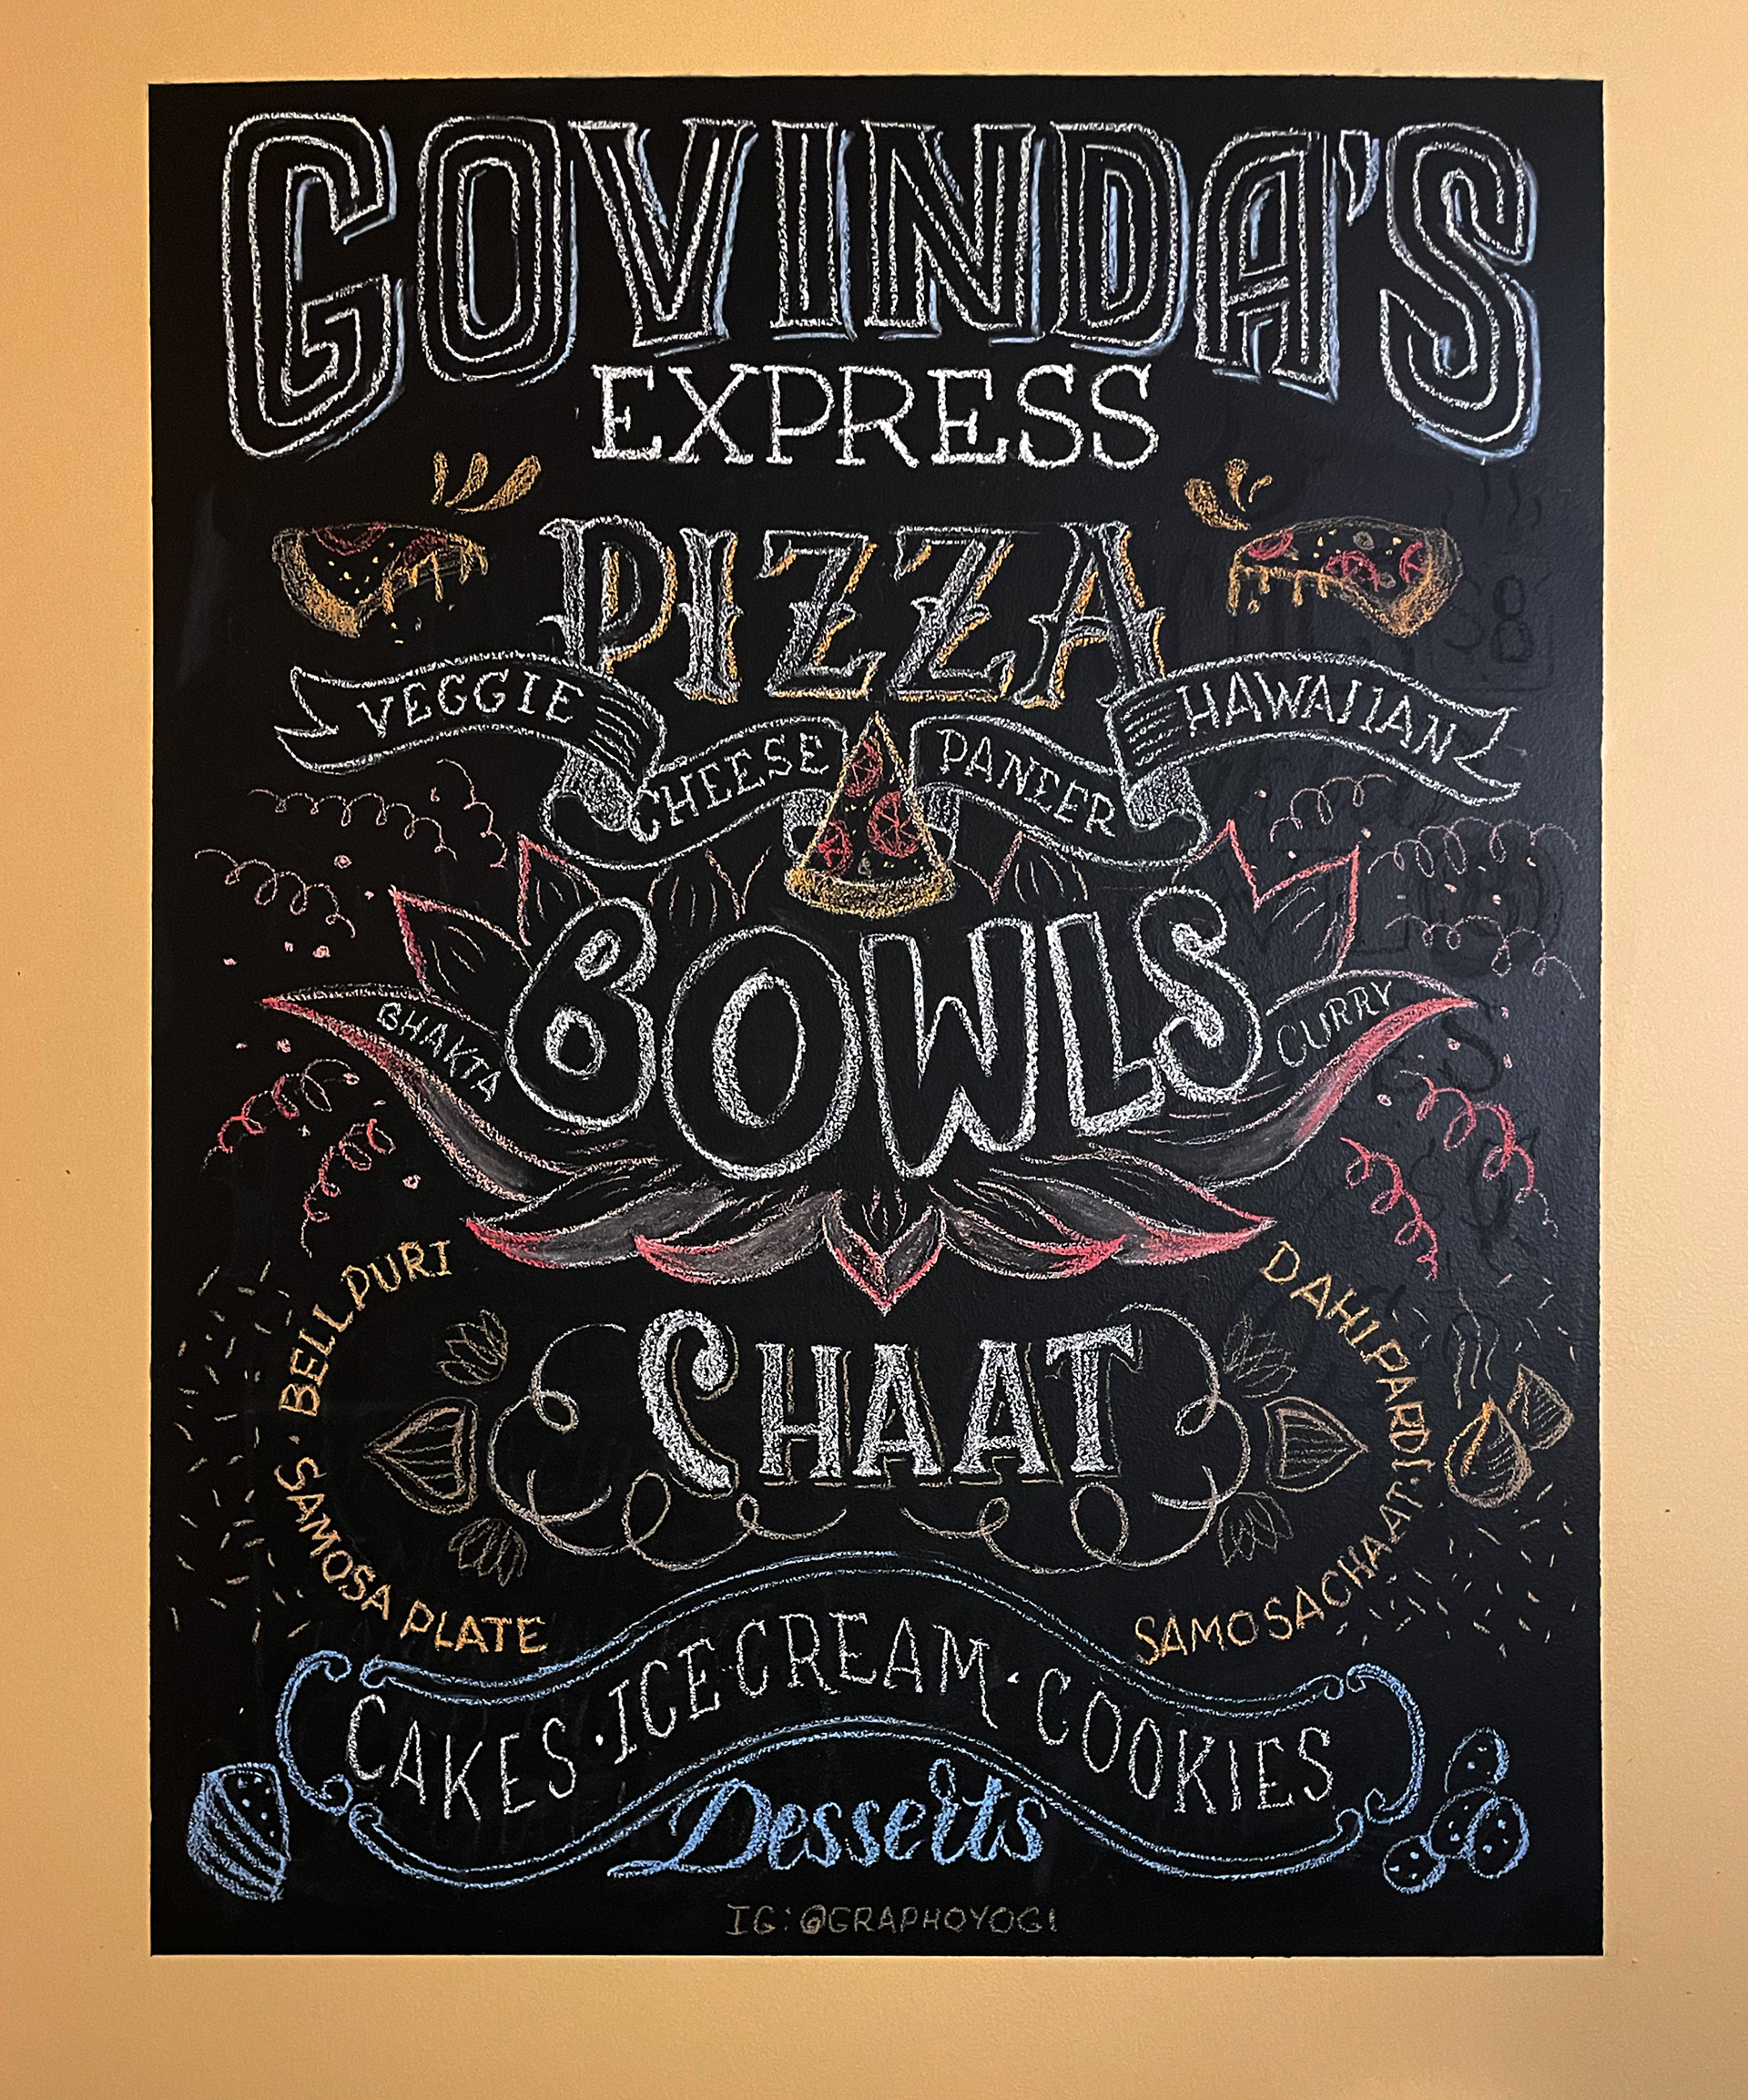 GOVINDA'S
EXPRESS
PIZZA
VEGGIE
CHEESE
PANEER
HAWAIIAN
BOWLS
BHAKTA
CURRY
CHAAT
BELL PURI
· SAMOSA PLATE
DAHI PARDI ·
SAMOSA CHAAT
CAKES · ICE CREAM · COOKIES
Desserts
IG: @GRAPHOYOGI